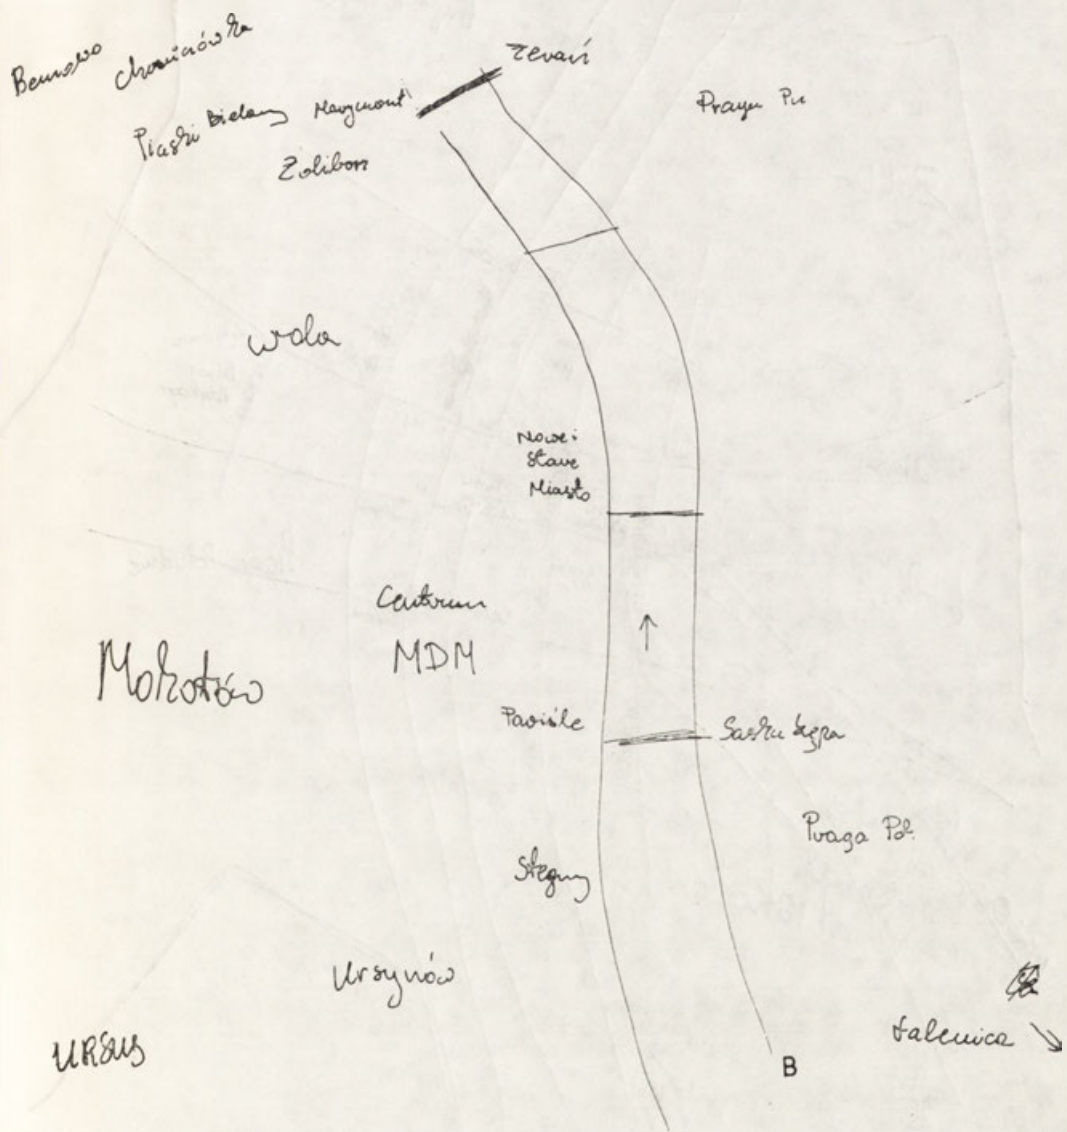 Bemowo
Chomiczówka
Żerań
Piaski Bielany Marymont
Praga Pn
Żoliborz
Wola
Nowe i
Stare
Miasto
Centrum
MDM
Mokotów
Powiśle
Saska Kępa
Praga Pd.
Stegny
Ursynów
URSUS
Falenica
B